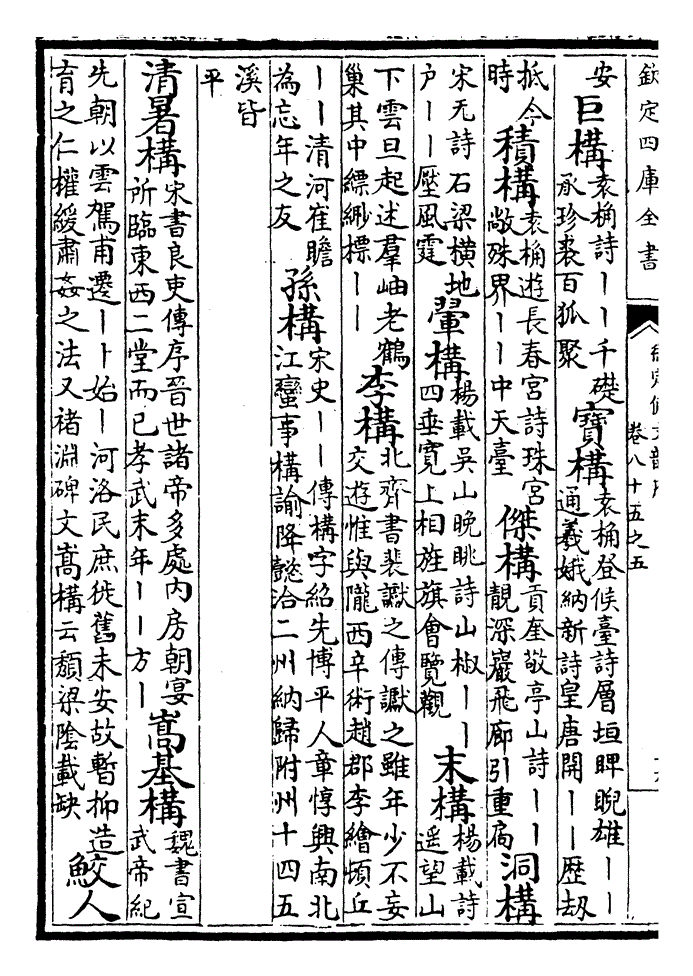 欽定四庫全書
卷八十五之五
安
巨構
袁桷詩丨丨千礎
承珍裘百狐聚
寶構
袁桷登候臺詩層垣睥睨雄丨丨
通義娥納新詩皇唐開丨丨歷刼
抵今
時
積構
袁桷遊長春宮詩珠宮
敞殊界丨丨中天臺
傑構
貢奎敬亭山詩丨丨
靚深巖飛廊引重扃
洞構
宋无詩石梁横地
户丨丨壓風霆
翬構
楊載吳山晚眺詩山椒丨丨
四垂寛上相旌旗會覽觀
末構
楊載詩
遥望山
下雲旦起述羣岫老鶴
巢其中縹緲標丨丨
李構
北齊書裴讞之傳讞之雖年少不妄
交遊惟與隴西辛術趙郡李繪頓丘
丨丨清河崔瞻
為忘年之友
孫構
宋史丨丨傳構字紹先博平人章惇興南北
江蠻事構諭降懿洽二州納歸附州十四五
溪皆
平
清暑構
宋書良吏傳序晉世諸帝多處内房朝宴
所臨東西二堂而已孝武末年丨丨方丨
嵩基構
魏書宣
武帝紀
先朝以雲駕甫遷丨卜始丨河洛民庶徙舊未安故暫抑造
育之仁權緩肅姦之法又禇淵碑文嵩構云頽梁陰載缺
鮫人